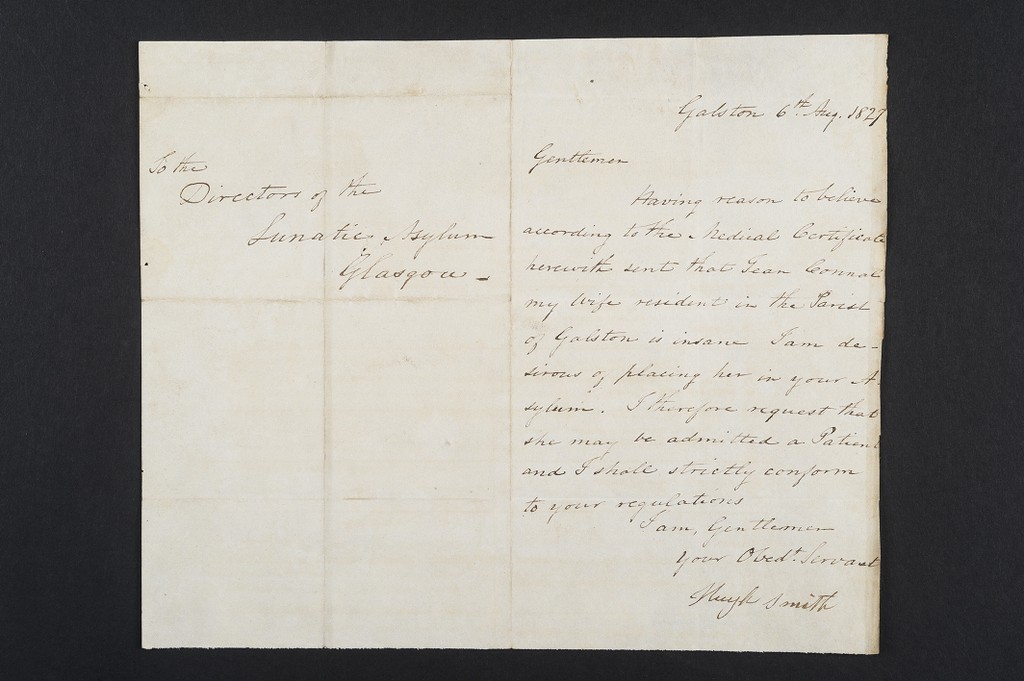 To the
Directors of the
Lunatic Asylum
Glasgow -
Galston 6th Aug. 1827
Gentlemen
Having reason to believe
according to the Medical Certificate
herewith sent that Jean Connal
my Wife resident in the Parish
of Galston is insane I am de-
sirous of placing her in your A
sylum. I therefore request that
she may be admitted a Patient
and I shall strictly conform
to your regulations
I am, Gentlemen
your Obedt. Servant
Hugh Smith